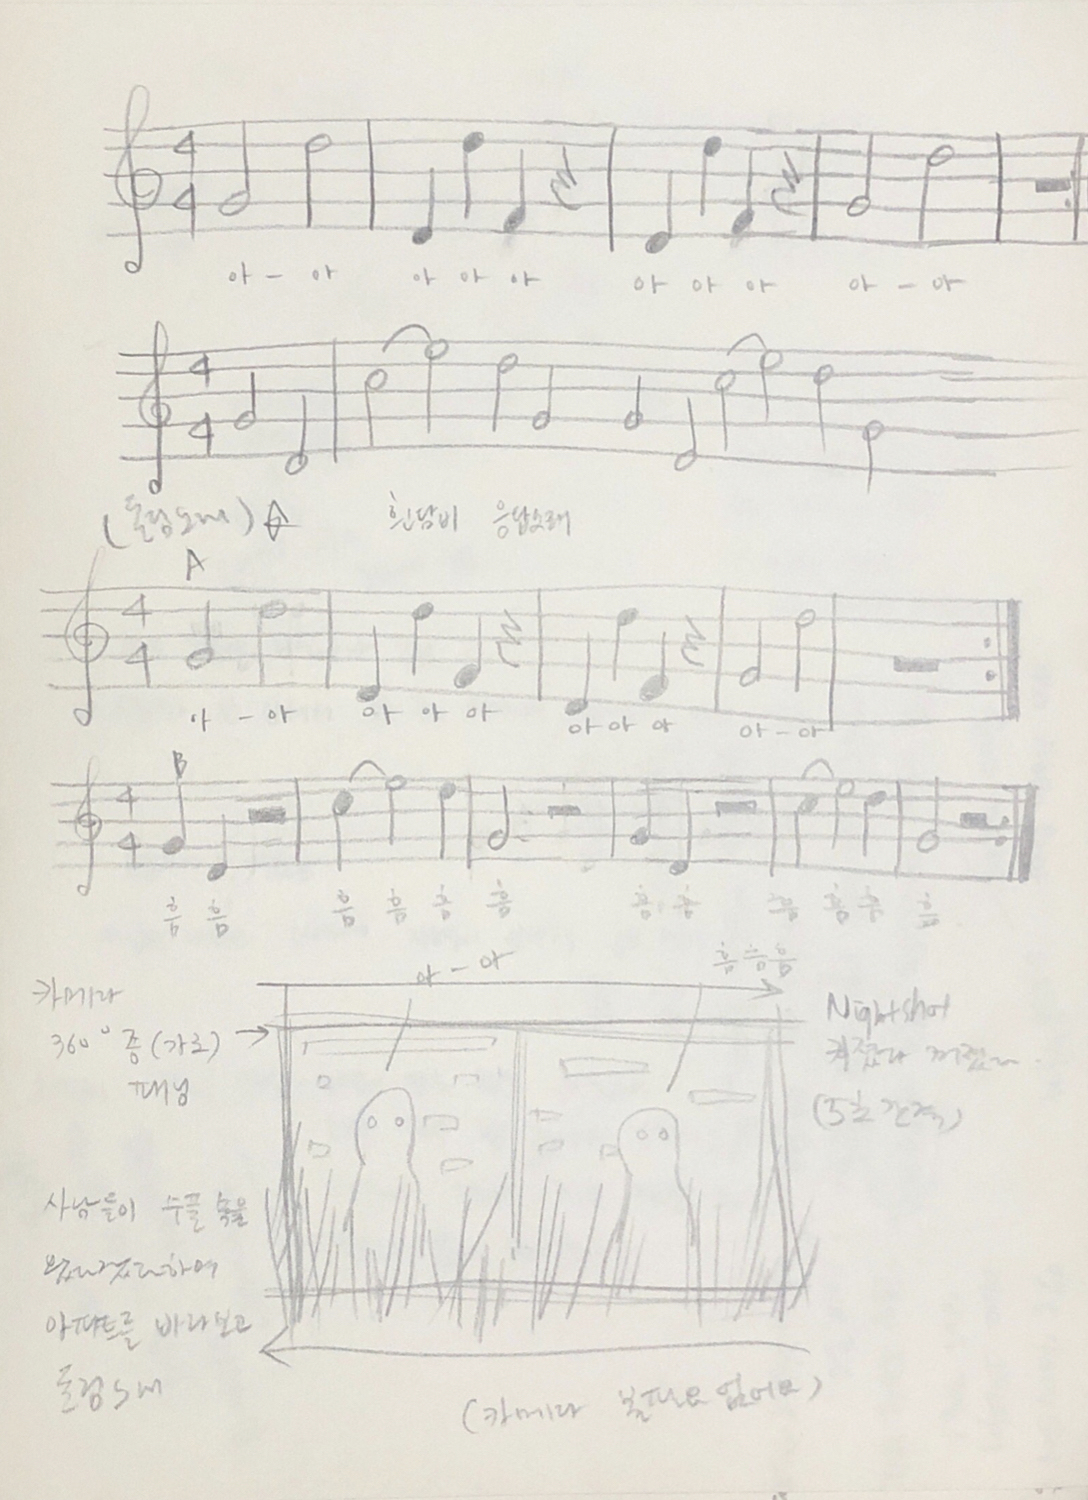 4 4
아 - 아 아 아 아 아 아 아 아 - 아
4 4
(돌림노래) A 흰담비 응답노래
A
4 4
아 - 아 아 아 아 아 아 아 아 - 아
B
4 4
흠 흠 흠 흠 흠 흠 흠 흠 흠 흠 흠 흠
아 - 아 흠 흠 흠
카메라
360° 종 (가로)
패닝
Nightshot
켜졌다 꺼졌다
(5초 간격)
사람들이 수풀 속을
왔다갔다하며
아파트를 바라보고
돌림노래
(카메라 볼 필요 없어요)